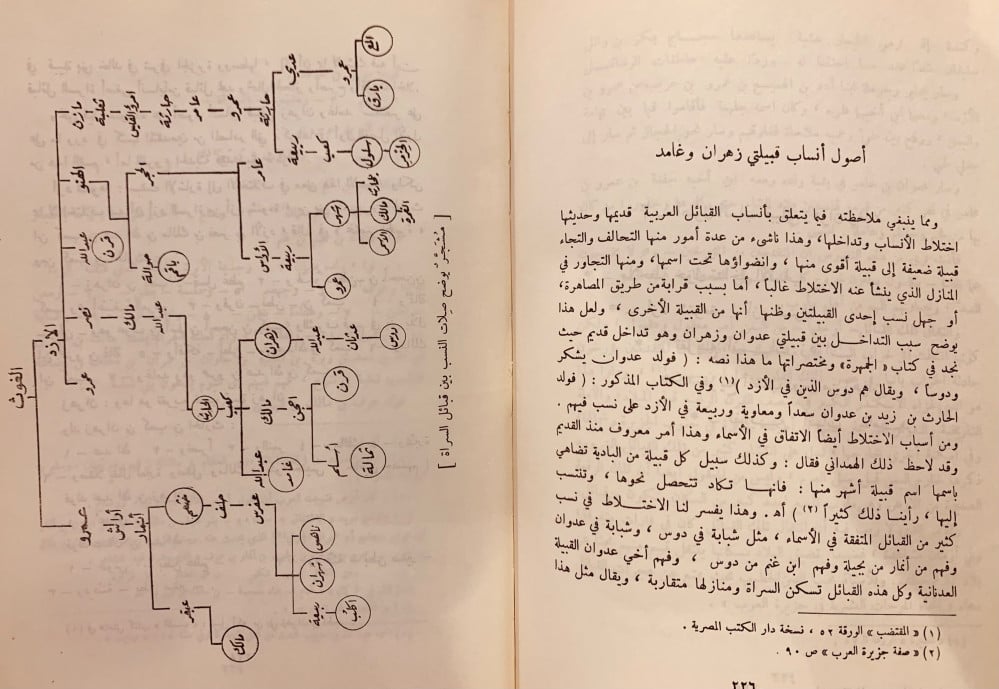 أصول أنساب قبيلتي زهران وغامد
ومما ينبغي ملاحظته فيما يتعلق بأنساب القبائل العربية قديمها وحديثها
اختلاط الأنساب وتداخلها، وهذا ناشىء من عدة أمور منها التحالف والتجاء
قبيلة ضعيفة إلى قبيلة أقوى منها ، وانضواؤها تحت اسمها، ومنها التجاور في
المنازل الذي ينشأ عنه الاختلاط غالباً، أما بسبب قرابة من طريق المصاهرة،
أو جهل نسب إحدى القبيلتين وظنها أنها من القبيلة الأخرى ، ولعل هذا
يوضح سبب التداخل بين قبيلتي عدوان وزهران وهو تداخل قديم حيث
نجد في كتاب « الجمهرة» ومختصراتها ما هذا نصه : ( فولد عدوان يشكر
ودوساً ، ويقال هم دوس الذين في الأزد )(١) وفي الكتاب المذكور : ( فولد
الحارث بن زيد بن عدوان سعداً ومعاوية وربيعة في الأزد على نسب فيهم .
ومن أسباب الاختلاط أيضاً الاتفاق في الأسماء وهذا أمر معروف منذ القديم
وقد لاحظ ذلك الهمداني فقال : وكذلك سبيل كل قبيلة من البادية تضاهي
باسمها اسم قبيلة أشهر منها : فانها تكاد تتحصل نحوها ، وتنتسب
إليها ، رأينا ذلك كثيراً (٢) ) أهـ. وهذا يفسر لنا الاختلاط في نسب
كثير من القبائل المتفقة في الأسماء ، مثل شبابة في دوس ، وشبابة في عدوان
وفهم من أنمار من بجيلة وفهم ابن غنم من دوس ، وفهم أخي عدوان القبيلة
العدنانية وكل هذه القبائل تسكن السراة ومنازلها متقاربة ، ويقال مثل هذا
(١) « المقتضب » الورقة ٥٢ ، نسخة دار الكتب المصرية .
(٢) « صفة جزيرة العرب » ص ٩٠ .
٢٢٦
الغوث
عمرو
الازد
أراش
أنمار
عبقر
مالك
خثعم
حلف
عفرس
ناهس
شهران
ربيعة
أكلب
عمرو
نصر
مالك
عبدالله
الحارث
كعب
زهران
عبدالله
عدنان
دوس
مالك
قرن
أسلم
ثمالة
عبدالله
غامد
عبدالله
قرن
الهنو
الحجر
حوالة
عامر
الأواس
ربيعة
عمرو
شهر
مالك
مازن
ثعلبة
امرؤ القيس
حارثة
عامر
عمرو
حارثة
عدي
عمرو
المع
بارق
ربيعة
[ مُشجّر يوضح صلات النسب بين قبائل السراة ]